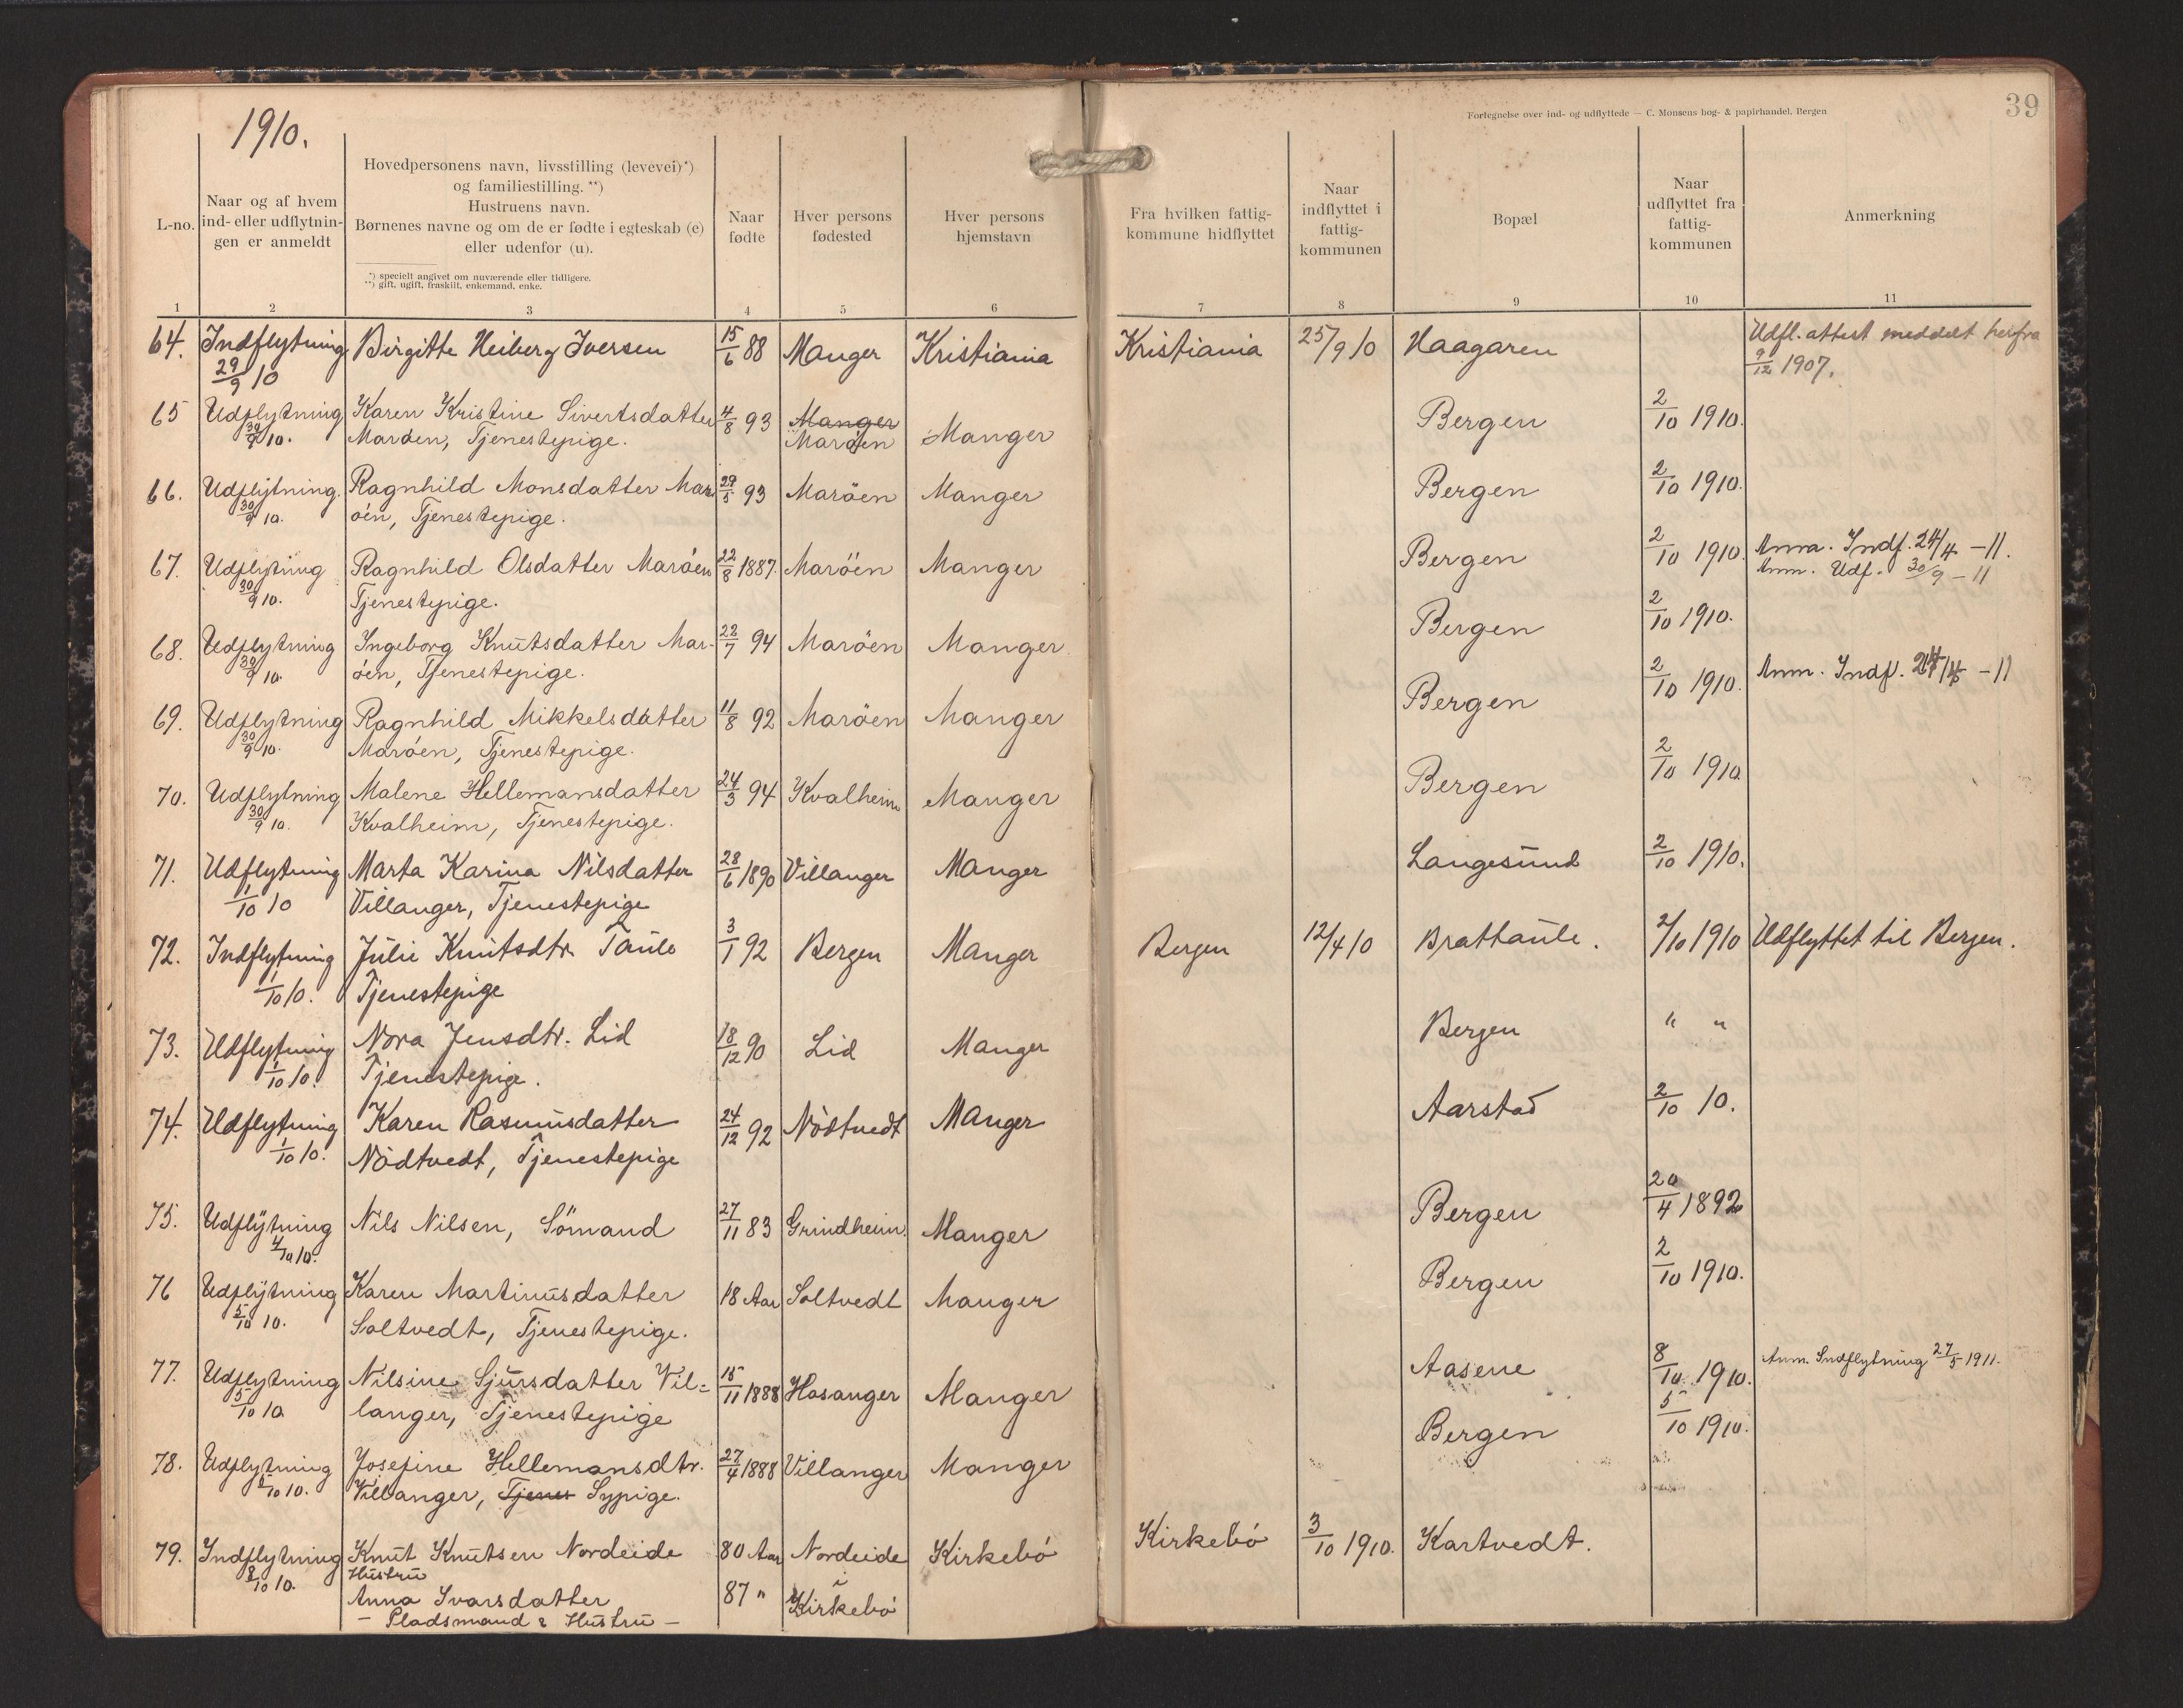 1910.
Fortegnelse over ind- og udflyttede — C. Monsens bog- & papirhandel, Bergen
39
L-no.
Naar og af hvem
ind- eller udflytnin-
gen er anmeldt
Hovedpersonens navn, livsstilling (levevei)*)
og familiestilling. **)
Hustruens navn.
Børnenes navne og om de er fødte i egteskab (e)
eller udenfor (u).
*) specielt angivet om nuværende eller tidligere.
**) gift, ugift, fraskilt, enkemand, enke.
Naar
fødte
Hver persons
fødested
Hver persons
hjemstavn
Fra hvilken fattig-
kommune hidflyttet
Naar
indflyttet i
fattig-
kommunen
Bopæl
Naar
udflyttet fra
fattig-
kommunen
Anmerkning
1 2 3 4 5 6 7 8 9 10 11
64. Indflytning Birgitte Heiberg Iversen 15/6 88 Manger Kristiania Kristiania 25/9 10 Haagaren Udfl. attest meddelt herfra
29/9 10 9/12 1907.
65 Udflytning Karen Kristine Sivertsdatter 4/8 93 Manger Manger Bergen 2/10 1910.
30/9 10. Maröen, Tjenestepige. Maröen
66. Udflytning Ragnhild Monsdatter Mar 29/5 93 Maröen Manger Bergen 2/10 1910.
30/9 10. öen, Tjenestepige.
67. Udflytning Ragnhild Olsdatter Maröen 22/8 1887 Maröen Manger Bergen 2/10 1910. Anm. Indf. 24/4 -11.
30/9 10. Tjenestepige. Anm. Udf. 30/9 - 11
68. Udflytning Ingeborg Knutsdatter Mar- 22/7 94 Maröen Manger Bergen 2/10 1910.
30/9 10. öen, Tjenestepige.
69. Udflytning Ragnhild Mikkelsdatter 11/8 92 Maröen Manger Bergen 2/10 1910. Anm. Indf. -11
30/9 10. Maröen, Tjenestepige.
70. Udflytning Malene Hellemansdatter 24/3 94 Kvalheim Manger Bergen 2/10 1910
30/9 10. Kvalheim, Tjenestepige.
71. Udflytning Marta Karina Nilsdatter 28/6 1890 Villanger Manger Langesund 2/10 1910.
1/10 10 Villanger, Tjenestepige
72. Indflytning Julie Knutsdtr. Taule 3/1 92 Bergen Manger Bergen 12/4 10 Brattaule. 2/10 1910 Udflyttet til Bergen.
1/10 10. Tjenestepige
73. Udflytning Nora Jensdtr. Lid 18/12 90 Lid Manger Bergen " "
1/10 10. Tjenestepige.
74. Udflytning Karen Rasmusdatter 24/12 92 Nödtvedt Manger Aarstad 2/10 10.
1/10 10. Nödtvedt, Tjenestepige
75. Udflytning Nils Nilsen, Sömand 27/11 83 Grindheim Manger Bergen 20/4 1892
4/10 10. 
76 Udflytning Karen Martinusdatter 18 Aar Soltvedt Manger Bergen 2/10 1910.
5/10 10. Soltvedt, Tjenestepige.
77. Udflytning Nilsine Sjursdatter Vil= 15/11 1888 Hosanger Manger Aasene 8/10 1910. Anm. Indflytning 27/5 1911.
5/10 10 langer, Tjenestepige
78. Udflytning Josefine Hellemansdtr. 27/4 1888 Villanger Manger Bergen 5/10 1910.
10 10. Villanger, Tjenes Sypige.
79. Indflytning Knut Knutsen Nordeide 80 Aar Nordeide Kirkebö Kirkebö 3/10 1910. Kartvedt.
8/10 10. Hustru i
Anna Ivarsdatter 87 " Kirkebö
- Pladsmand & Hustru -